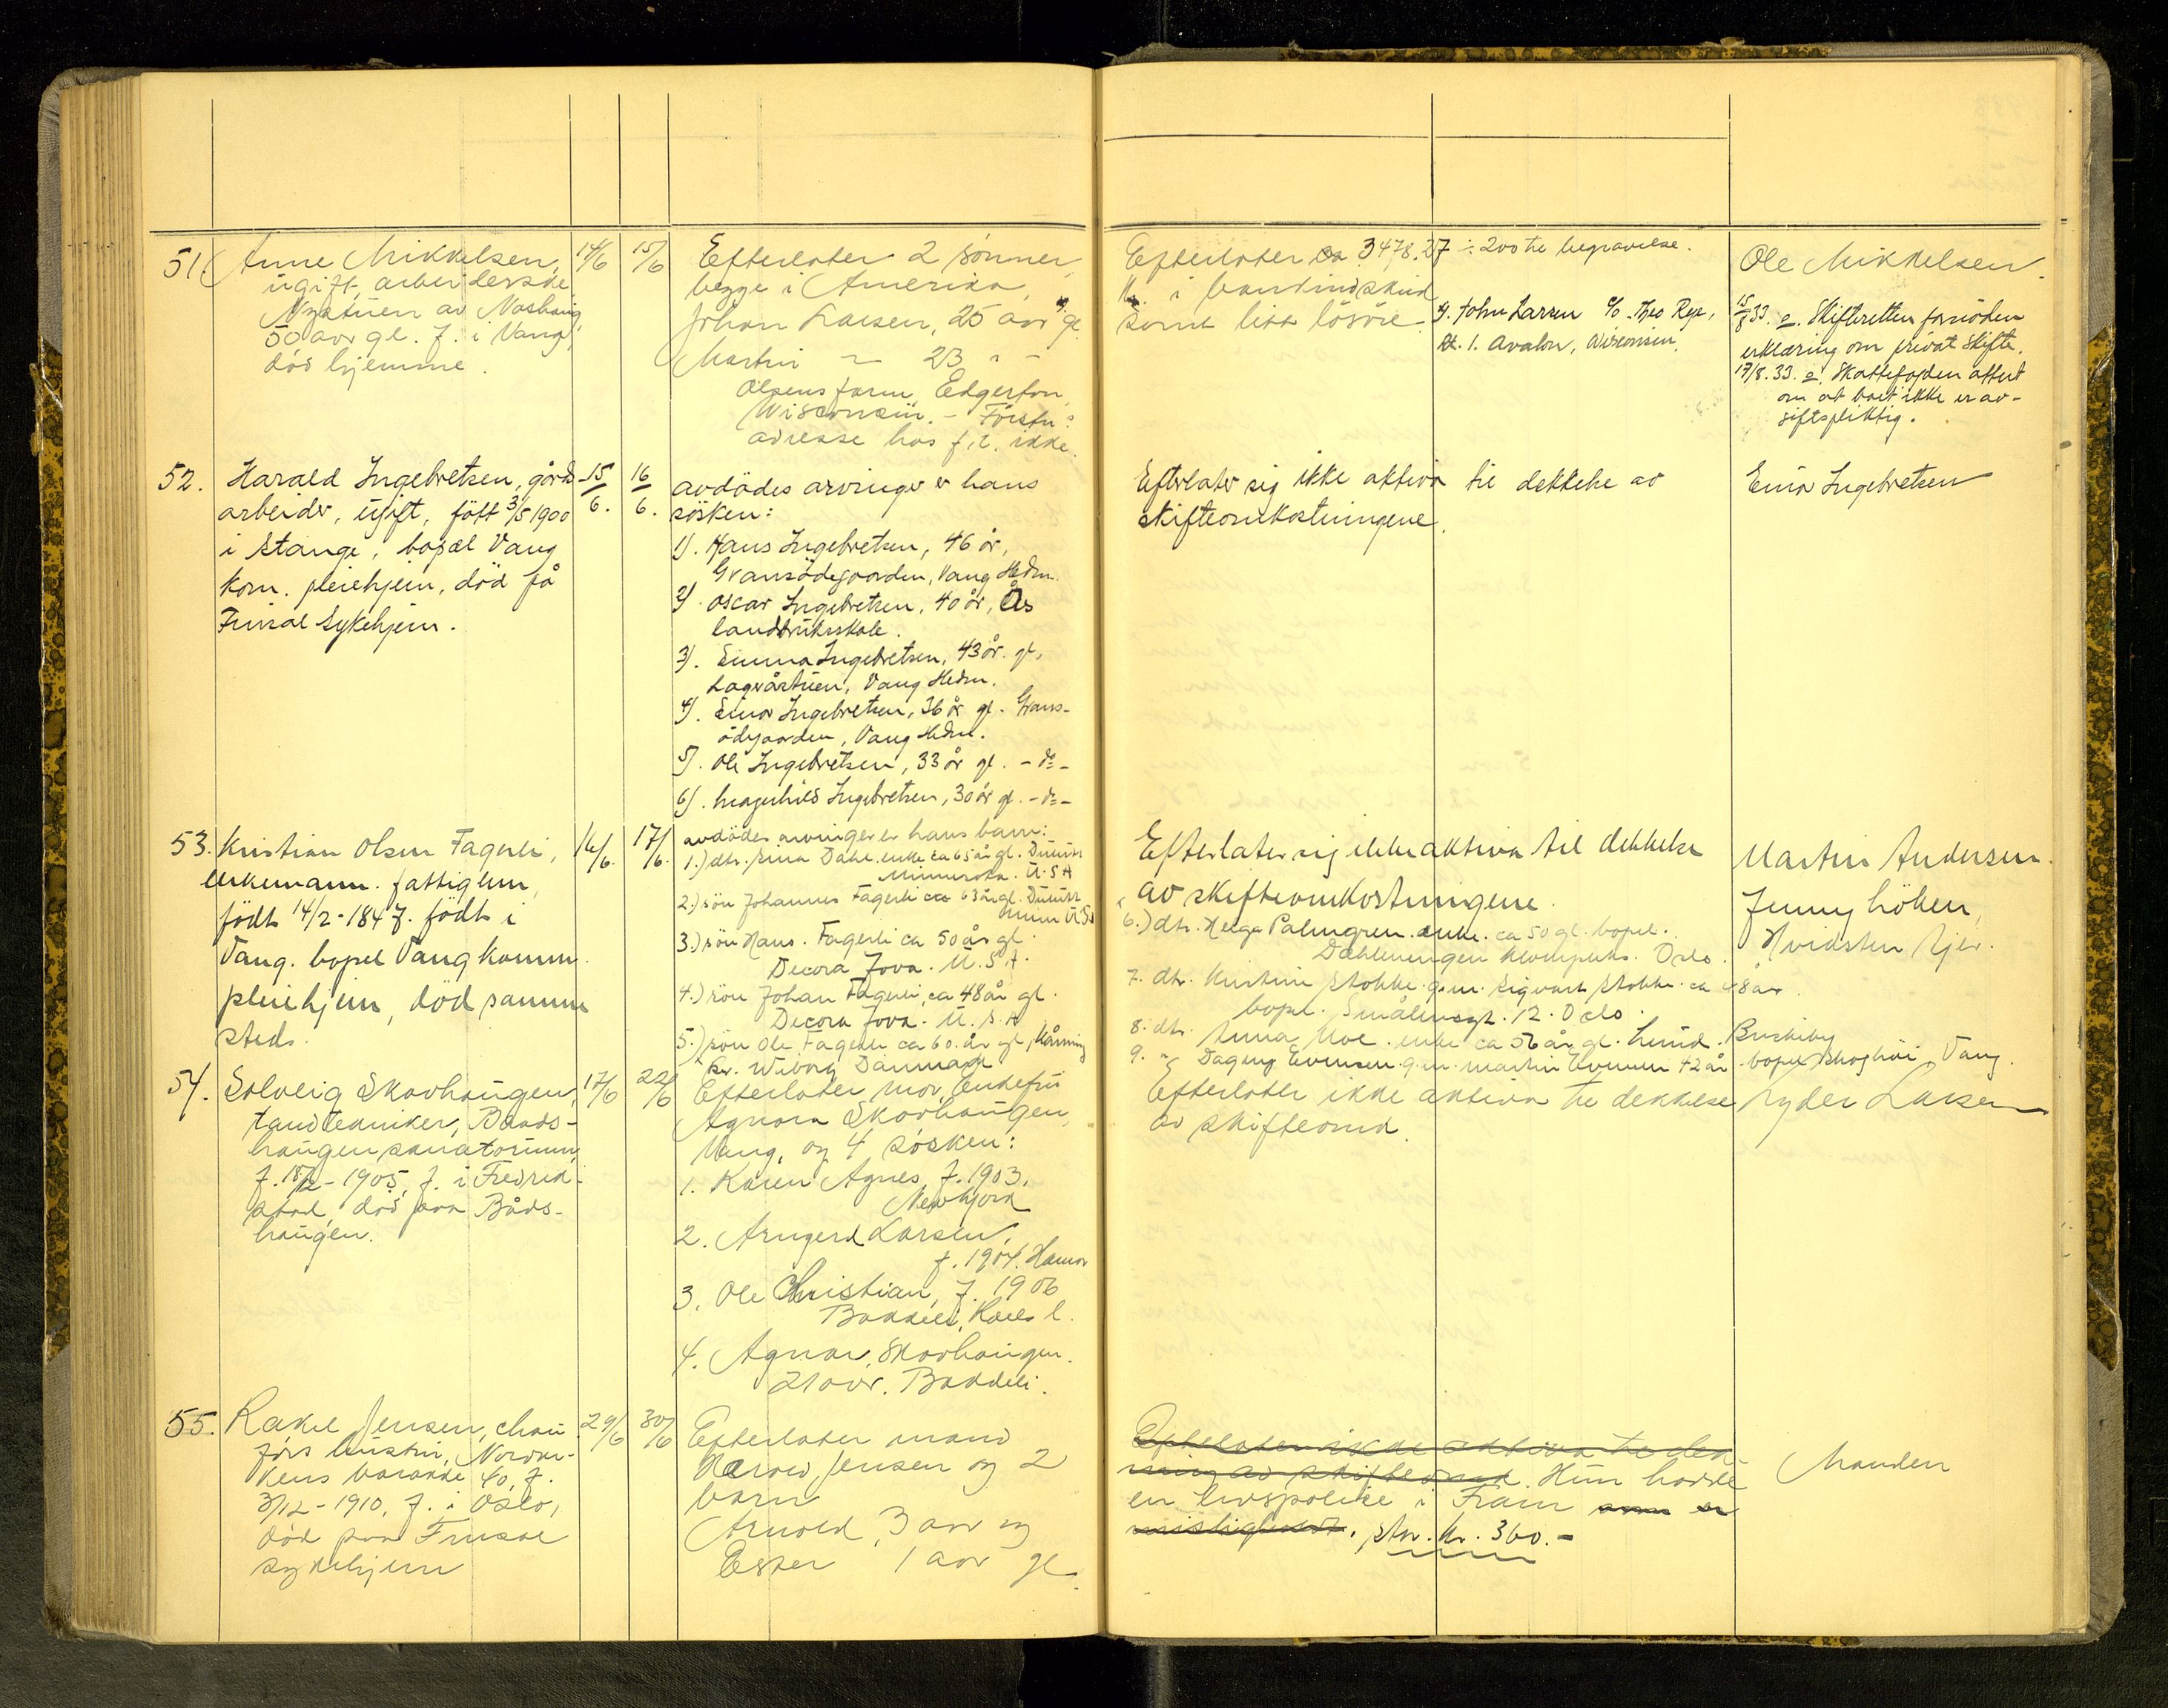 51. Anne Mikkelsen, 14/6 15/6
ugift arbeiderske
Nystuen av Nashaug,
50 aar gl. f. i Vang,
død hjemme.
Efterlater 2 sønner,
begge i Amerika,
Johan Larsen, 25 aar gl.
Martin — 23 " —
Olsens farm, Edgerton,
Wisconsin. –
adresse hos f.r. ikke.
Efterlater ca 3478.27 ÷ 200 til begravelse.
kr. i bankindskud
samt litt løsøre
1). John Larsen c/o Theo Rye,
Rt. 1. Avalon, Wisconsin.
Ole Mikkelsen.
15/8 33. e. Skifteretten fornøden
erklæring om privat skifte.
17/8. 33. e. Skattefogden attest
om at boet ikke er av-
giftspliktig.
52. Harald Ingebretsen, gårds- 15/6. 16/6.
arbeider, ugift, født 3/5 1900
i Stange, bopæl Vang
kom. pleiehjem, død på
Frisal sykehjem.
avdødes arvinger er hans
søsken:
1). Hans Ingebretsen, 46 år,
Gransødegaarden, Vang Hedm.
2). Oscar Ingebretsen, 40 år, Ås
landbruksskole.
3). Emma Ingebretsen, 43 år. gl.
Vang Hedm.
4). Einar Ingebretsen, 36 år gl. Grans-
ødgaarden, Vang Hedm.
5). Ole Ingebretsen, 33 år gl. - do -
6). Magnhild Ingebretsen, 30 år gl. - do -
Efterlater sig ikke aktiva til dekkelse av
skifteomkostningene.
Einar Ingebretsen
53. Kristian Olsen Fagerli, 16/6. 17/6.
enkemann. fattiglem,
født 14/2-1847. født i
Vang. bopel Vang komm.
pleiehjem, død samme
steds.
avdødes arvinger er hans barn:
1.) dtr. Dahl. enke ca 65 år gl. Duluth
Minnesota. U.S.A
2.) søn Johannes Fagerli ca 63 år gl. Duluth
Minn U.S.A
3.) søn Hans. Fagerli ca 50 år gl.
Decora Jova. U.S.A.
4.) søn Johan Fagerli, ca 48 år gl.
Decora Jova. U.S.A
5.) søn Ole Fagerli ca 60. år gl,
pr. Wiborg Danmark
Efterlater sig ikke aktiva til dekkelse
av skifteomkostningene.
6.) dtr. Helga Palmgren. enke. ca 50 gl. bopel.
Oslo.
7. dtr. Kristine Stokke. g.m. Sigvart Stokke. ca 48 år
bopel. Smålensgt. 12. Oslo.
8. dtr. Anna Moe. enke ca 56 år gl. Lund. Buskeby
9. " Dagny Evensen. g.m. Martin Evensen 42 år. bopel Skoghøi, Vang.
Martin Andersen.
Jenny Løken,
Hvidsten Hjer.
54. Solveig Skovhaugen, 17/6 22/6
tandtekniker, Baads-
haugen sanatorium,
f. 18/12-1905, f. i Fredrik-
stad, død paa Båds-
haugen.
Efterlater mor, enkefru
Agnora Skovhaugen,
Vang, og 4 søsken:
1. Karen Agnes, f. 1903,
Newyork
2. Arngerd Larsen,
f. 1904. Hamar
3. Ole Christian, f. 1906
4. Agnar, Skovhaugen.
21 aar. Bakkeli.
Efterlater ikke aktiva til dekkelse
av skifteomk.
Ryder Larsen
55. Rakel Jensen, chau- 29/6 30/6
førs hustru, Nordvi-
kens barakke 40, f.
3/12-1910, f. i Oslo,
død paa Frisal
sykehjem
Efterlater mand
Harald Jensen og 2
barn
Arnold, 3 aar og
Esther 1 aar gl.
Efterlater ikke aktiva til dek-
ning av skifteomk. Hun hadde
en livspolise i Fram som er
, stor. kr. 360.-
Manden